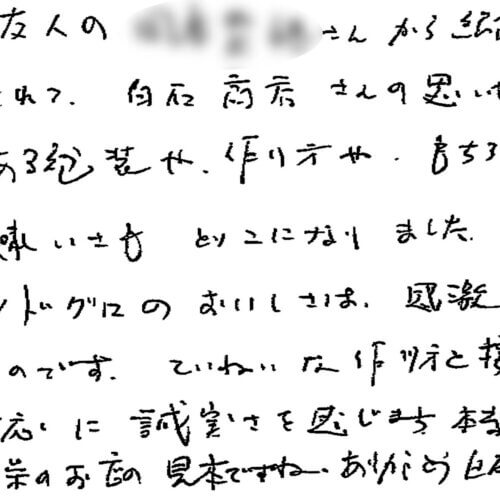 友人の さんから紹
されて、白石商店さんの思いや
ある包装や、作り方や、もちろ
味いさも とりこになりました。
ンドグロのおいしさは、感激
のです。ていねいな作り方と接
応いに誠実さを感じます。本当
栄のお店の見本ですね。ありがとう 白石